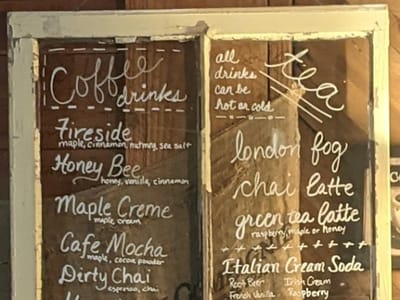 Coffee
drinks
Fireside
maple, cinnamon, nutmeg, sea salt
Honey Bee
honey, vanilla, cinnamon
Maple Creme
maple, cream
Cafe Mocha
maple, cocoa powder
Dirty Chai
espresso, chai
all
drinks
can be
hot or cold
tea
london fog
chai latte
green tea latte
raspberry, maple or honey
Italian Cream Soda
Root Beer Irish Cream
French Vanilla Raspberry